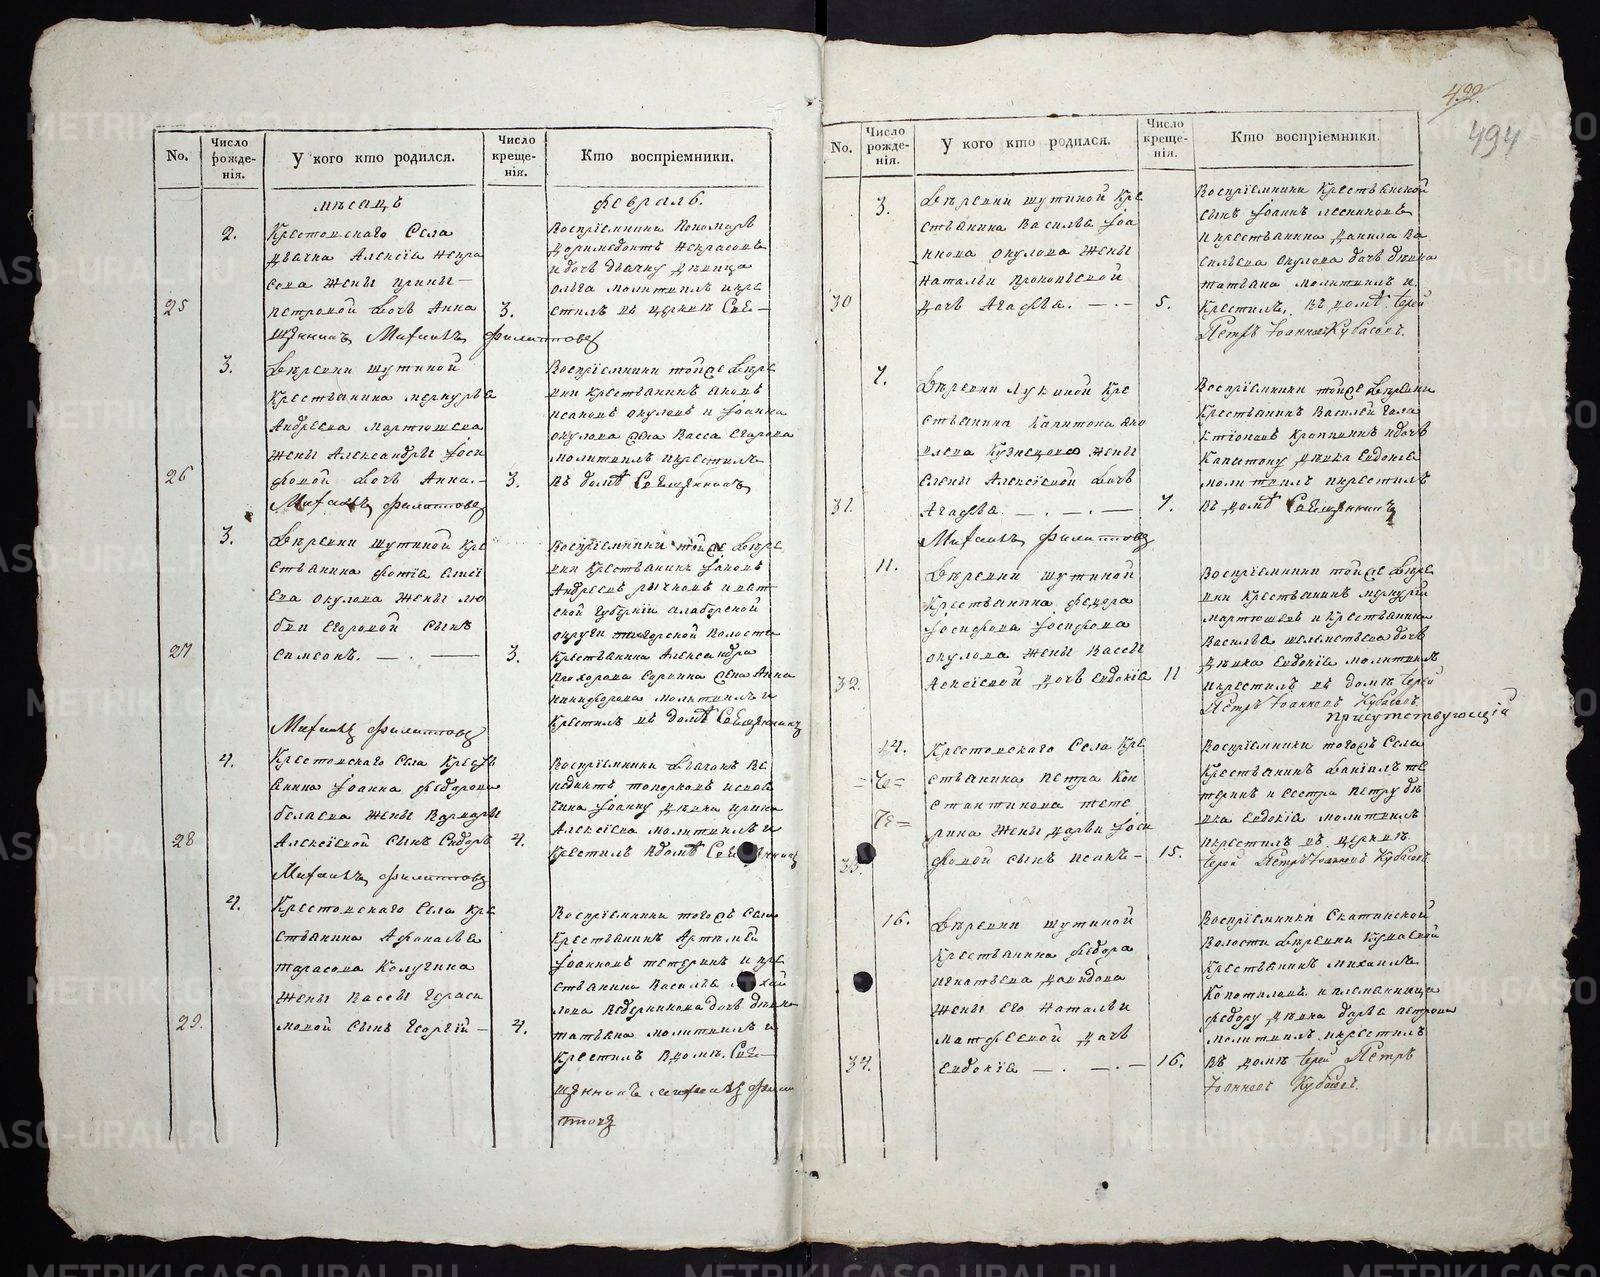 499.
494
No.
Число рожде-нія.
У кого кто родился.
Число креще-нія.
Кто воспріемники.
мѣсацъ
февраль.
2.
Крестовскаго Села
дьячка Алексіѣа Некра
сова жены Ирины
25
петровой дочь Анна
3.
Воспріемники Пономарь
Некрасовъ
и дочь дьячку дѣвица
Ольга молитвилъ и кре
стилъ въ церквѣ Свѣ—
щѣнникъ Михаилъ Филипповъ
3.
Дѣревни шутиной
Крестьанина меркурьѣа
Андреева Мартюшева
жены Александры Іоси
26
фовой дочь Анна.—
3.
Воспріемники тойже дѣре
вни крестьанинъ
окуловъ и Іоанна
окулова жена Васса Егорова
молитвилъ икрестилъ
въ домѣ Свѣщѣнникъ
Михаилъ Филипповъ
3.
Дѣревни шутиной Кре
стьанина фотіѣа елисѣ
ева окулова жены лю
бви Егоровой сынъ
27
симеонъ. — . —
3.
Воспріемники тойже дѣре
вни крестьанинъ
Андреевъ рычковъ и вят
ской губерніи
округи волости
Крестьанина Александра
Прохорова жена Анна
никифорова молитвилъ и
Крестилъ въ домѣ Свѣщѣнникъ
Михаилъ Филипповъ
4.
Крестовскаго Села Кресть
анина Іоанна федорова
белаева жены Варвары
28
Алексіевой сынъ Сидоръ
4.
Воспріемники дьачокъ Ве
недиктъ топорковъ
Іоанну дѣвка ирина
Алексіева молитвилъ и
Крестилъ вдомѣ
Михаилъ Филипповъ
4.
Крестовскаго Села кре
стьанина Афанасьѣа
тарасова Калугина
жены Вассы Гераси
29.
мовой сынъ Георгій —
4.
Воспріемники тогожъ Села
Крестьанинъ Артѣмѣй
Іоанновъ тетеринъ и кре
стьанина Василья
лова Ведерникова дочь дѣвка
татьана молитвилъ и
Крестилъ вдомѣ. Свѣ—
щѣнникъ михаилъ фили
пповъ
No.
Число рожде-нія.
У кого кто родился.
Число креще-нія.
Кто воспріемники.
3.
Дѣревни шутиной Кре
стьанина Василья Іоа
ннова окулова жены
Натальи Прокопьевой
30
дочь Агафья. — . —
5.
Воспріемники Крестьанской
сынъ Іоаннъ
икрестьанина данила Ва
сильева окулова дочь дѣвка
татьана молитвилъ и
Крестилъ, въ домѣ Іерей
Петръ Іоанновъ Кубасовъ.
7.
Дѣревни Лукиной Кре
стьанина Капитона Яко
влева Кузнецова жены
Елены Алексіевой дочь
31.
Агафья. — . — . —
7.
Воспріемники тойже дѣревни
Крестьанинъ Василей Гала
ктіоновъ идочь
Капитону дѣвка Евдокіа
молитвилъ икрестилъ
въ домѣ Свѣщѣнникъ
Михаилъ Филипповъ
11.
Дѣревни шутиной
Крестьанина федора
Іосифова Іосифова
окулова жены Вассы
32.
Алексіевой дочь Евдокіа
11
Воспріемники тойже дѣре
вни крестьанинъ меркурій
мартюшевъ и крестьанина
Василья шелеметьева дочь
дѣвка Евдокіа молитвилъ
икрестилъ въ домѣ Іерей
Петръ Іоанновъ Кубасовъ.
присутствующій
14.
Крестовскаго Села Кре
стьанина Петра Кон
стантинова тете
рина жены дарьи Іоси
33.
фовой сынъ исакъ —
15.
Воспріемники тогожъ Села
Крестьанинъ данилъ те
теринъ и сестра Петру дѣ
вка Евдокіа молитвилъ
икрестилъ въ церквѣ.
Іерей Петръ Іоанновъ Кубасовъ
16.
Дѣревни шутиной
Крестьанина федора
игнатьева давидова
жены его Натальи
матфеевой дочь
34.
Евдокіа — . — . —
16.
Воспріемники Скатинской
Волости дѣревни
Крестьанинъ михаилъ
Копотиловъ. и племянница
федору дѣвка дарьа Петрова
молитвилъ икрестилъ
въ домѣ Іерей Петръ
Іоанновъ Кубасовъ.